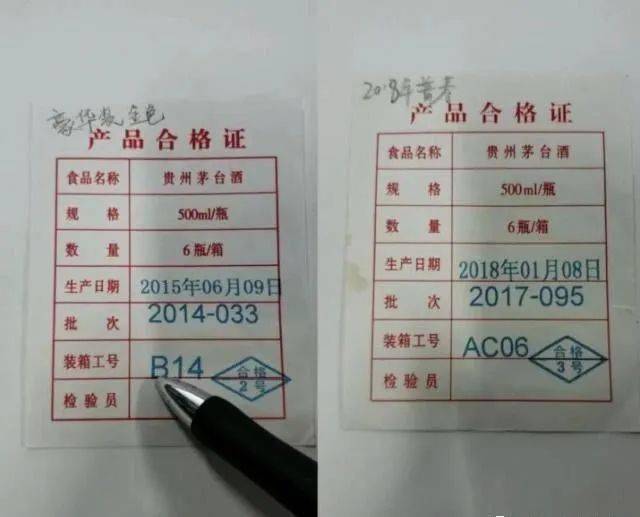 豪华装金色
产品合格证
食品名称 贵州茅台酒
规 格 500ml/瓶
数 量 6瓶/箱
生产日期 2015年06月09日
批 次 2014-033
装箱工号 B14
检验员 合格 2号
2018年普茅
产品合格证
食品名称 贵州茅台酒
规 格 500ml/瓶
数 量 6瓶/箱
生产日期 2018年01月08日
批 次 2017-095
装箱工号 AC06
检验员 合格 3号